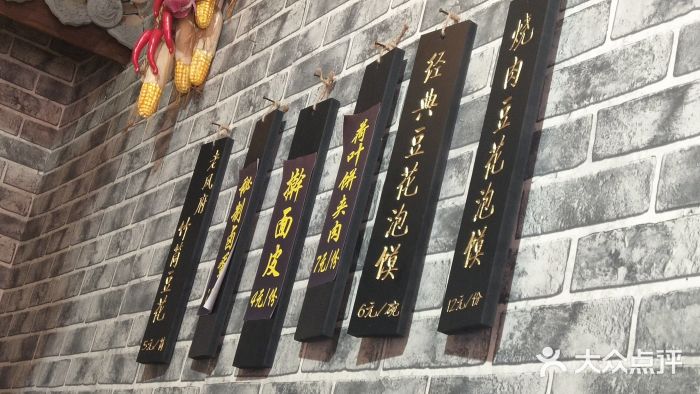 烧肉豆花泡馍
12元/份
经典豆花泡馍
6元/碗
荷叶饼夹肉
7元/份
擀面皮
4元/份
秘制卤蛋
老凤府
竹筒豆花
5元/筒
大众点评